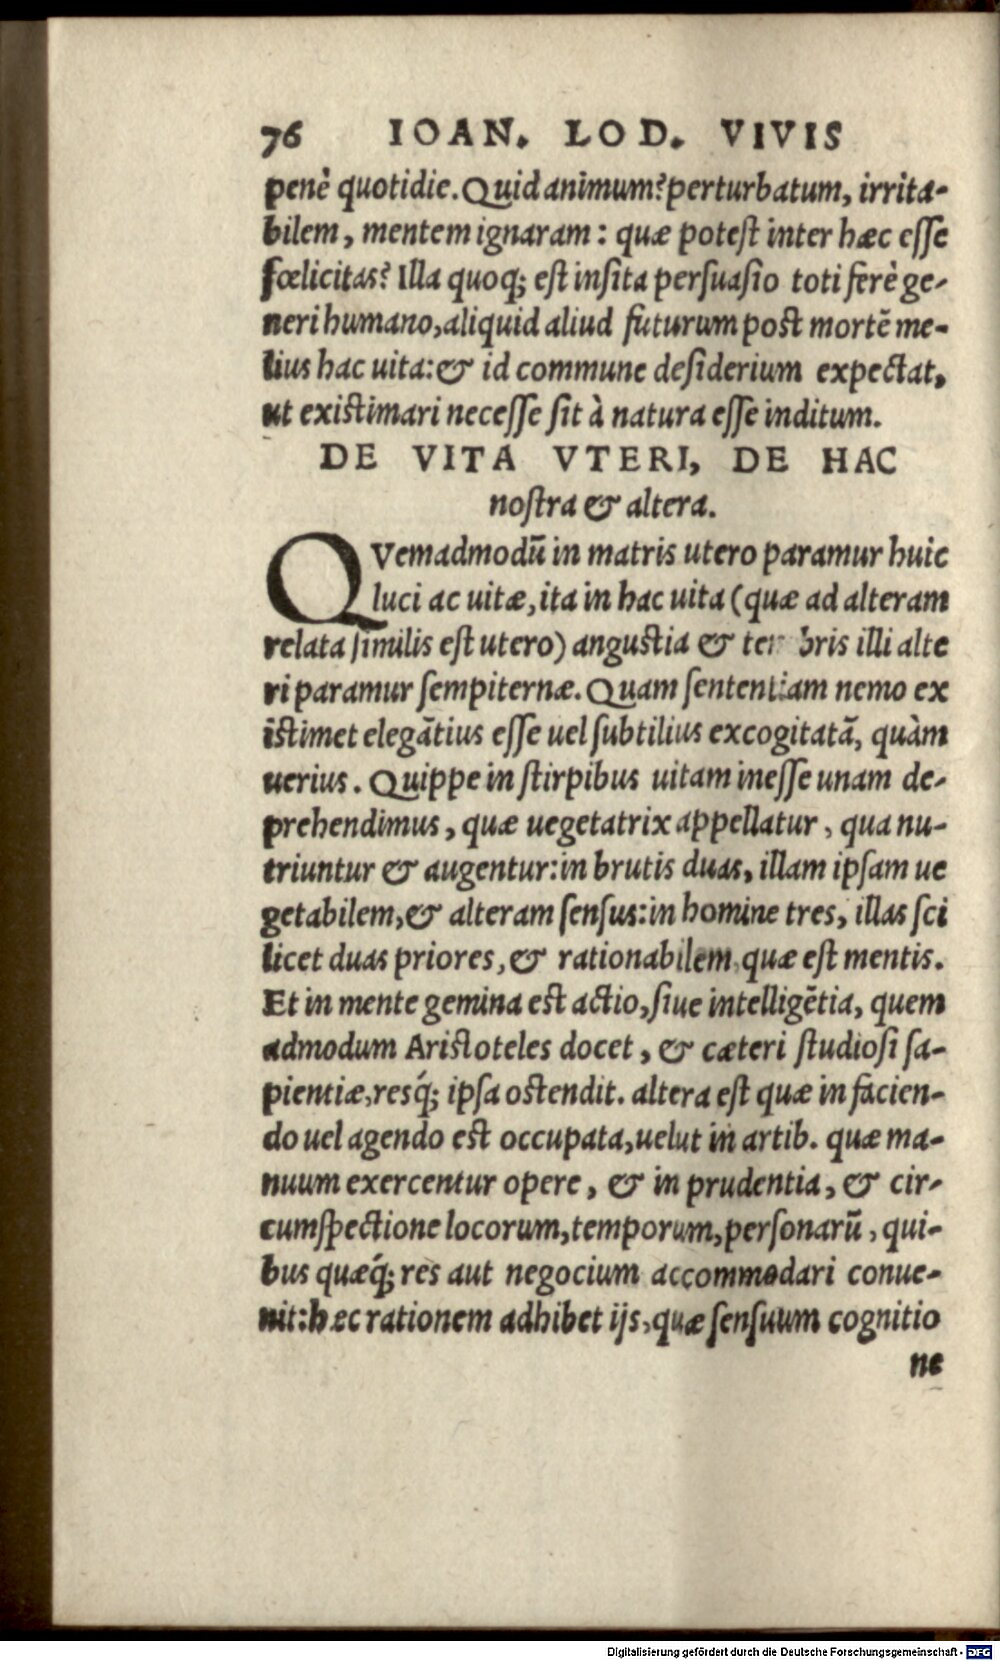 76 IOAN. LOD. VIVIS
penè quotidie. Quid animum? perturbatum, irrita-
bilem, mentem ignaram: quæ potest inter hæc esse
fœlicitas? Illa quoq; est insita persuasio toti ferè ge-
neri humano, aliquid aliud futurum post mortē me-
lius hac uita: & id commune desiderium expectat,
ut existimari necesse sit à natura esse inditum.
DE VITA VTERI, DE HAC
nostra & altera.
QVemadmodū in matris utero paramur huic
luci ac uitæ, ita in hac uita (quæ ad alteram
relata similis est utero) angustia & illi alte
ri paramur sempiternæ. Quam sententiam nemo ex
istimet elegātius esse uel subtilius excogitatā, quàm
uerius. Quippe in stirpibus uitam inesse unam de-
prehendimus, quæ uegetatrix appellatur, qua nu-
triuntur & augentur: in brutis duas, illam ipsam ue
getabilem, & alteram sensus: in homine tres, illas sci
licet duas priores, & rationabilem, quæ est mentis.
Et in mente gemina est actio, siue intelligētia, quem
admodum Aristoteles docet, & cæteri studiosi sa-
pientiæ, resq́; ipsa ostendit. altera est quæ in facien-
do uel agendo est occupata, uelut in artib. quæ ma-
nuum exercentur opere, & in prudentia, & cir-
cumspectione locorum, temporum, personarū, qui-
bus quæq́; res aut negocium accommodari conue-
nit: hæc rationem adhibet ijs, quæ sensuum cognitio
ne
Digitalisierung gefördert durch die Deutsche Forschungsgemeinschaft - DFG